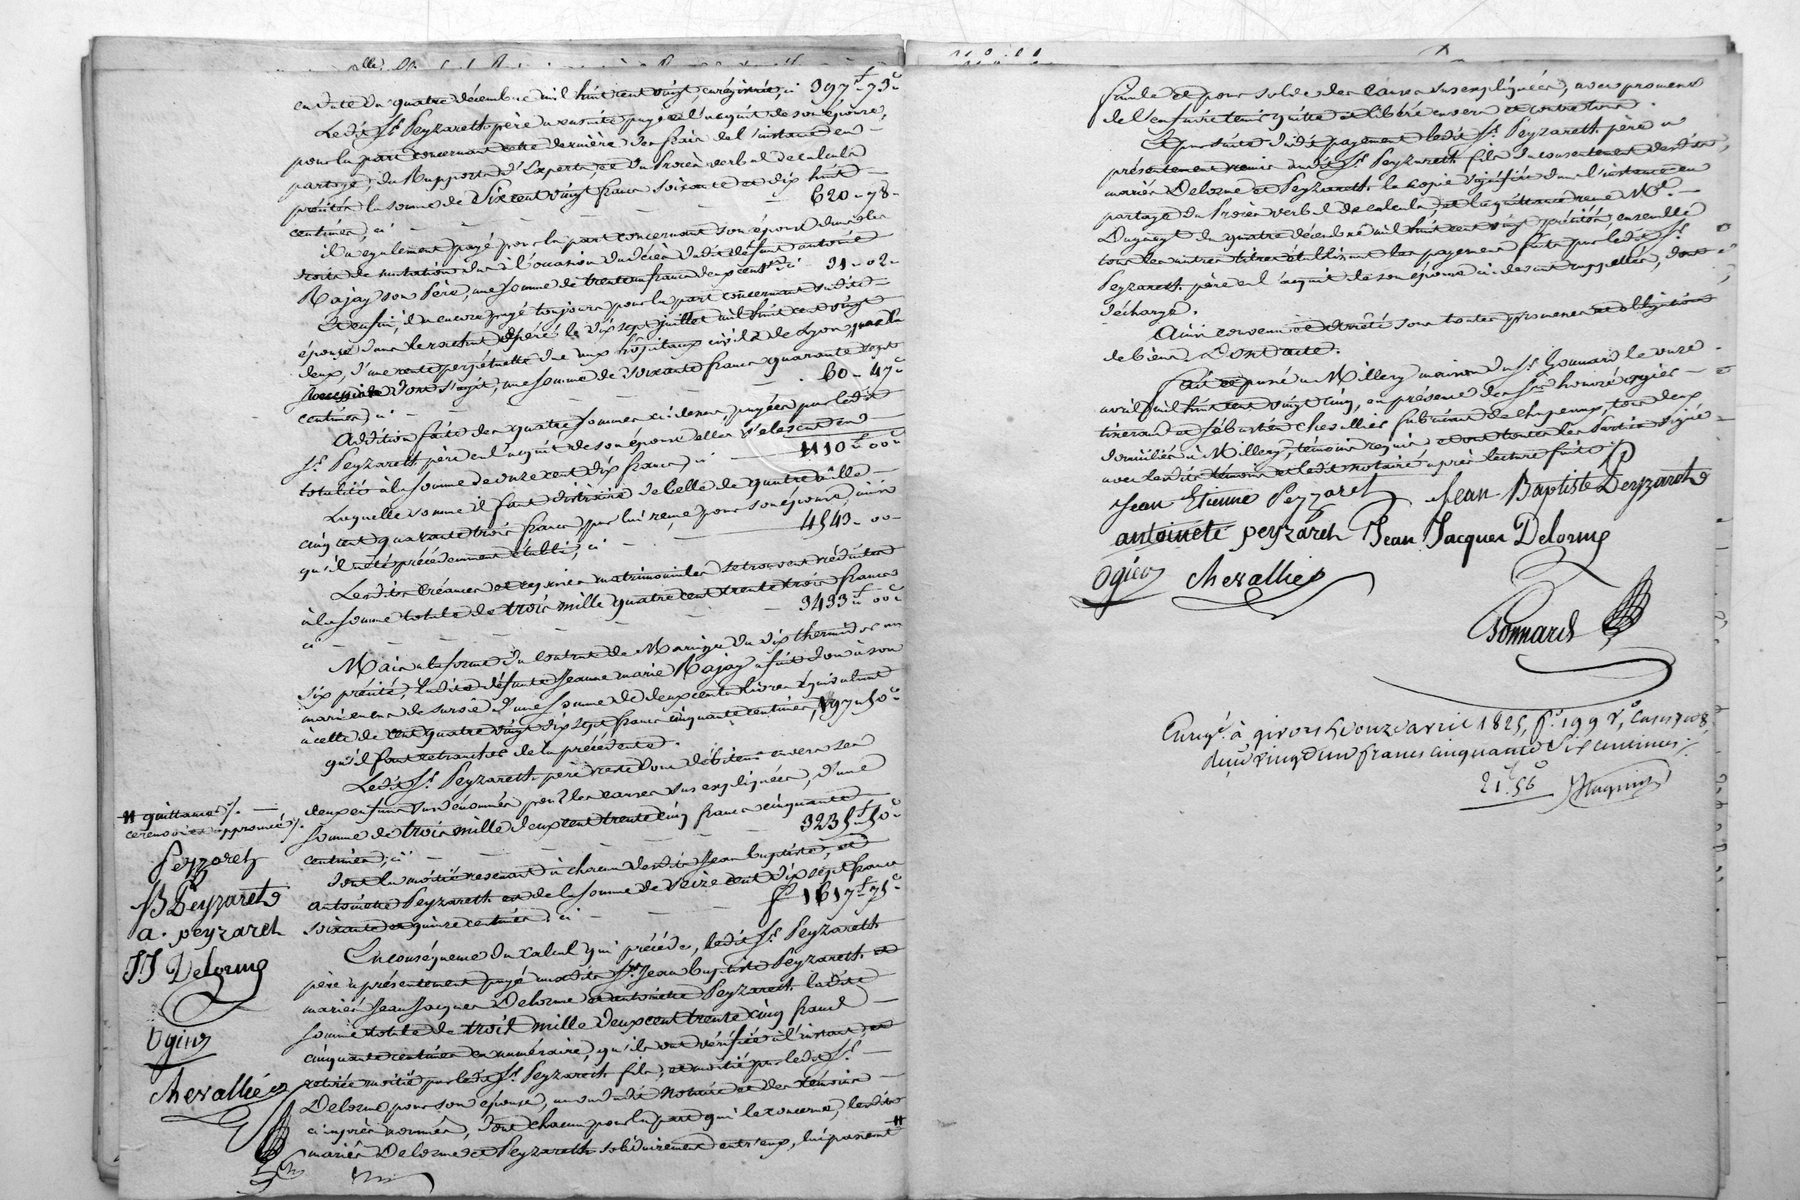 en date du quatre décembre mil huit cent vingt, enrégistrée, ci 397f-73c
Ledit Sr. Peyzareth père a ensuite payé en l'acquit de son épouse,
pour la part concernant cette dernière des frais de l'instance en
partage, du Rapport d'Experts, et du Procès verbal de calculs
précités la somme de Six cent vingt francs soixante et dix huit
centimes, ci 620-78-
il a également payé pour la part concernant son épouse dans les
droits de mutation dus à l'occasion du décès dudit défunt antoine
Rajay son Père, une somme de trente un francs deux centes ci 31-02-
Et enfin, il a encore payé toujours pour la part concernant sadite
épouse dans le rachat opéré le dix sept juillet mil huit cent vingt
deux, d'une rente perpétuelle due aux hôpitaux civils de Lyon par la
succession dont s'agit, une somme de soixante francs quarante sept
centimes, ci 60-47c
Addition faite des quatre sommes ci dessus, payées par ledit
Sr. Peyzareth père en l'acquit de son épouse elles s'élèvent en
totalité à la somme de onze cent dix francs, ci 1110f-00c
Laquelle somme il faut distraire de celle de quatre mille
cinq cent quarante trois francs par lui reçue pour son épouse, ainsi
qu'il a été précédemment établi, ci 4543-00-
Lesdites créances et reprises matrimoniales se trouvent réduites
à la somme totale de trois mille quatre cent trente trois francs
ci 3433f-00c
Mais à la forme du Contrat de Mariage du dix thermidor an
six précité, ladite défunte Jeanne marie Rajay a fait don à son
mari en cas de survie d'une somme de deux cents livres équivalant
à celle de cent quatre vingt dix sept francs cinquante centimes, 197-50c
qu'il faut retrancher de la précédente.
Ledit Sr. Peyzareth père reste donc débiteur envers ses
deux enfans susdénommés pour les causes sus expliquées, d'une
somme de trois mille deux cent trente cinq francs cinquante
centimes, ci 3235f-50c
dont la moitié revenant à chacun desdits Jean baptiste, et
antoinette Peyzareth est de la somme de seize cent dix sept francs
soixante et quinze centimes, ci 1617f-75c
En conséquence du calcul qui précède, ledit Sr. Peyzareth
père a présentement payé auxdits Sr. Jean baptiste Peyzareth et
mariés Jean Jacques Delorme et antoinette Peyzareth ladite
somme totale de trois mille deux cent trente cinq francs
cinquante centimes en numéraire, qu'ils ont vérifiée à l'instant, et
retirée moitié par ledit Sr. Peyzareth fils, et moitié par ledit Sr.
Delorme pour son épouse, au vu dudit Notaire et des témoins
ci après nommés, dont chacun pour la part qui le concerne, lesdits
mariés Delorme et Peyzareth solidairement entr'eux, lui passent #
# quittance
ce renvoi approuvé
Peyzaret
JB Peyzareth
a. peyzaret
JJ Delorme
Ogier
Chevallier
finale et pour solde des causes sus expliquées, avec promesse
de l'en faire tenir quitte et libéré envers et contre tous.
Et par suite dudit payement ledit Sr. Peyzareth père a
présentement remis audit Sr. Peyzareth fils du consentement desdits
mariés Delorme et Peyzareth la copie signifiée dans l'instance en
partage du Procès verbal de calculs, et la quittance reçue Me.
Duguayt du quatre décembre mil huit cent vingt précitée, ensemble
tous les autres titres établissant les payemens faits par ledit Sr.
Peyzareth père en l'acquit de son épouse ci devant rappellés, dont
décharge.
Ainsi convenu et arrêté sous toutes promesses et obligations
de biens. Dont acte.
Fait et passé à Millery maison du Sr. Gonnard le onze
avril mil huit cent vingt cinq, en présence des Srs. honoré ogier
tisserand et Sébastien Chevallier fabricant de chapeaux, tous deux
domiciliés à Millery, témoins requis et ont toutes les Parties signé
avec lesdits témoins et ledit notaire après lecture faite
Jean Etienne Peyzaret Jean Baptiste Peyzareth
antoinete peyzaret Jean Jacques Delorme
Ogier Chevallier
Gonnard
Enregé. à givors le onze avril 1825, fo. 199 Vo. Cases 7 et 8
reçu vingt un francs cinquante Six centimes
21f.56c